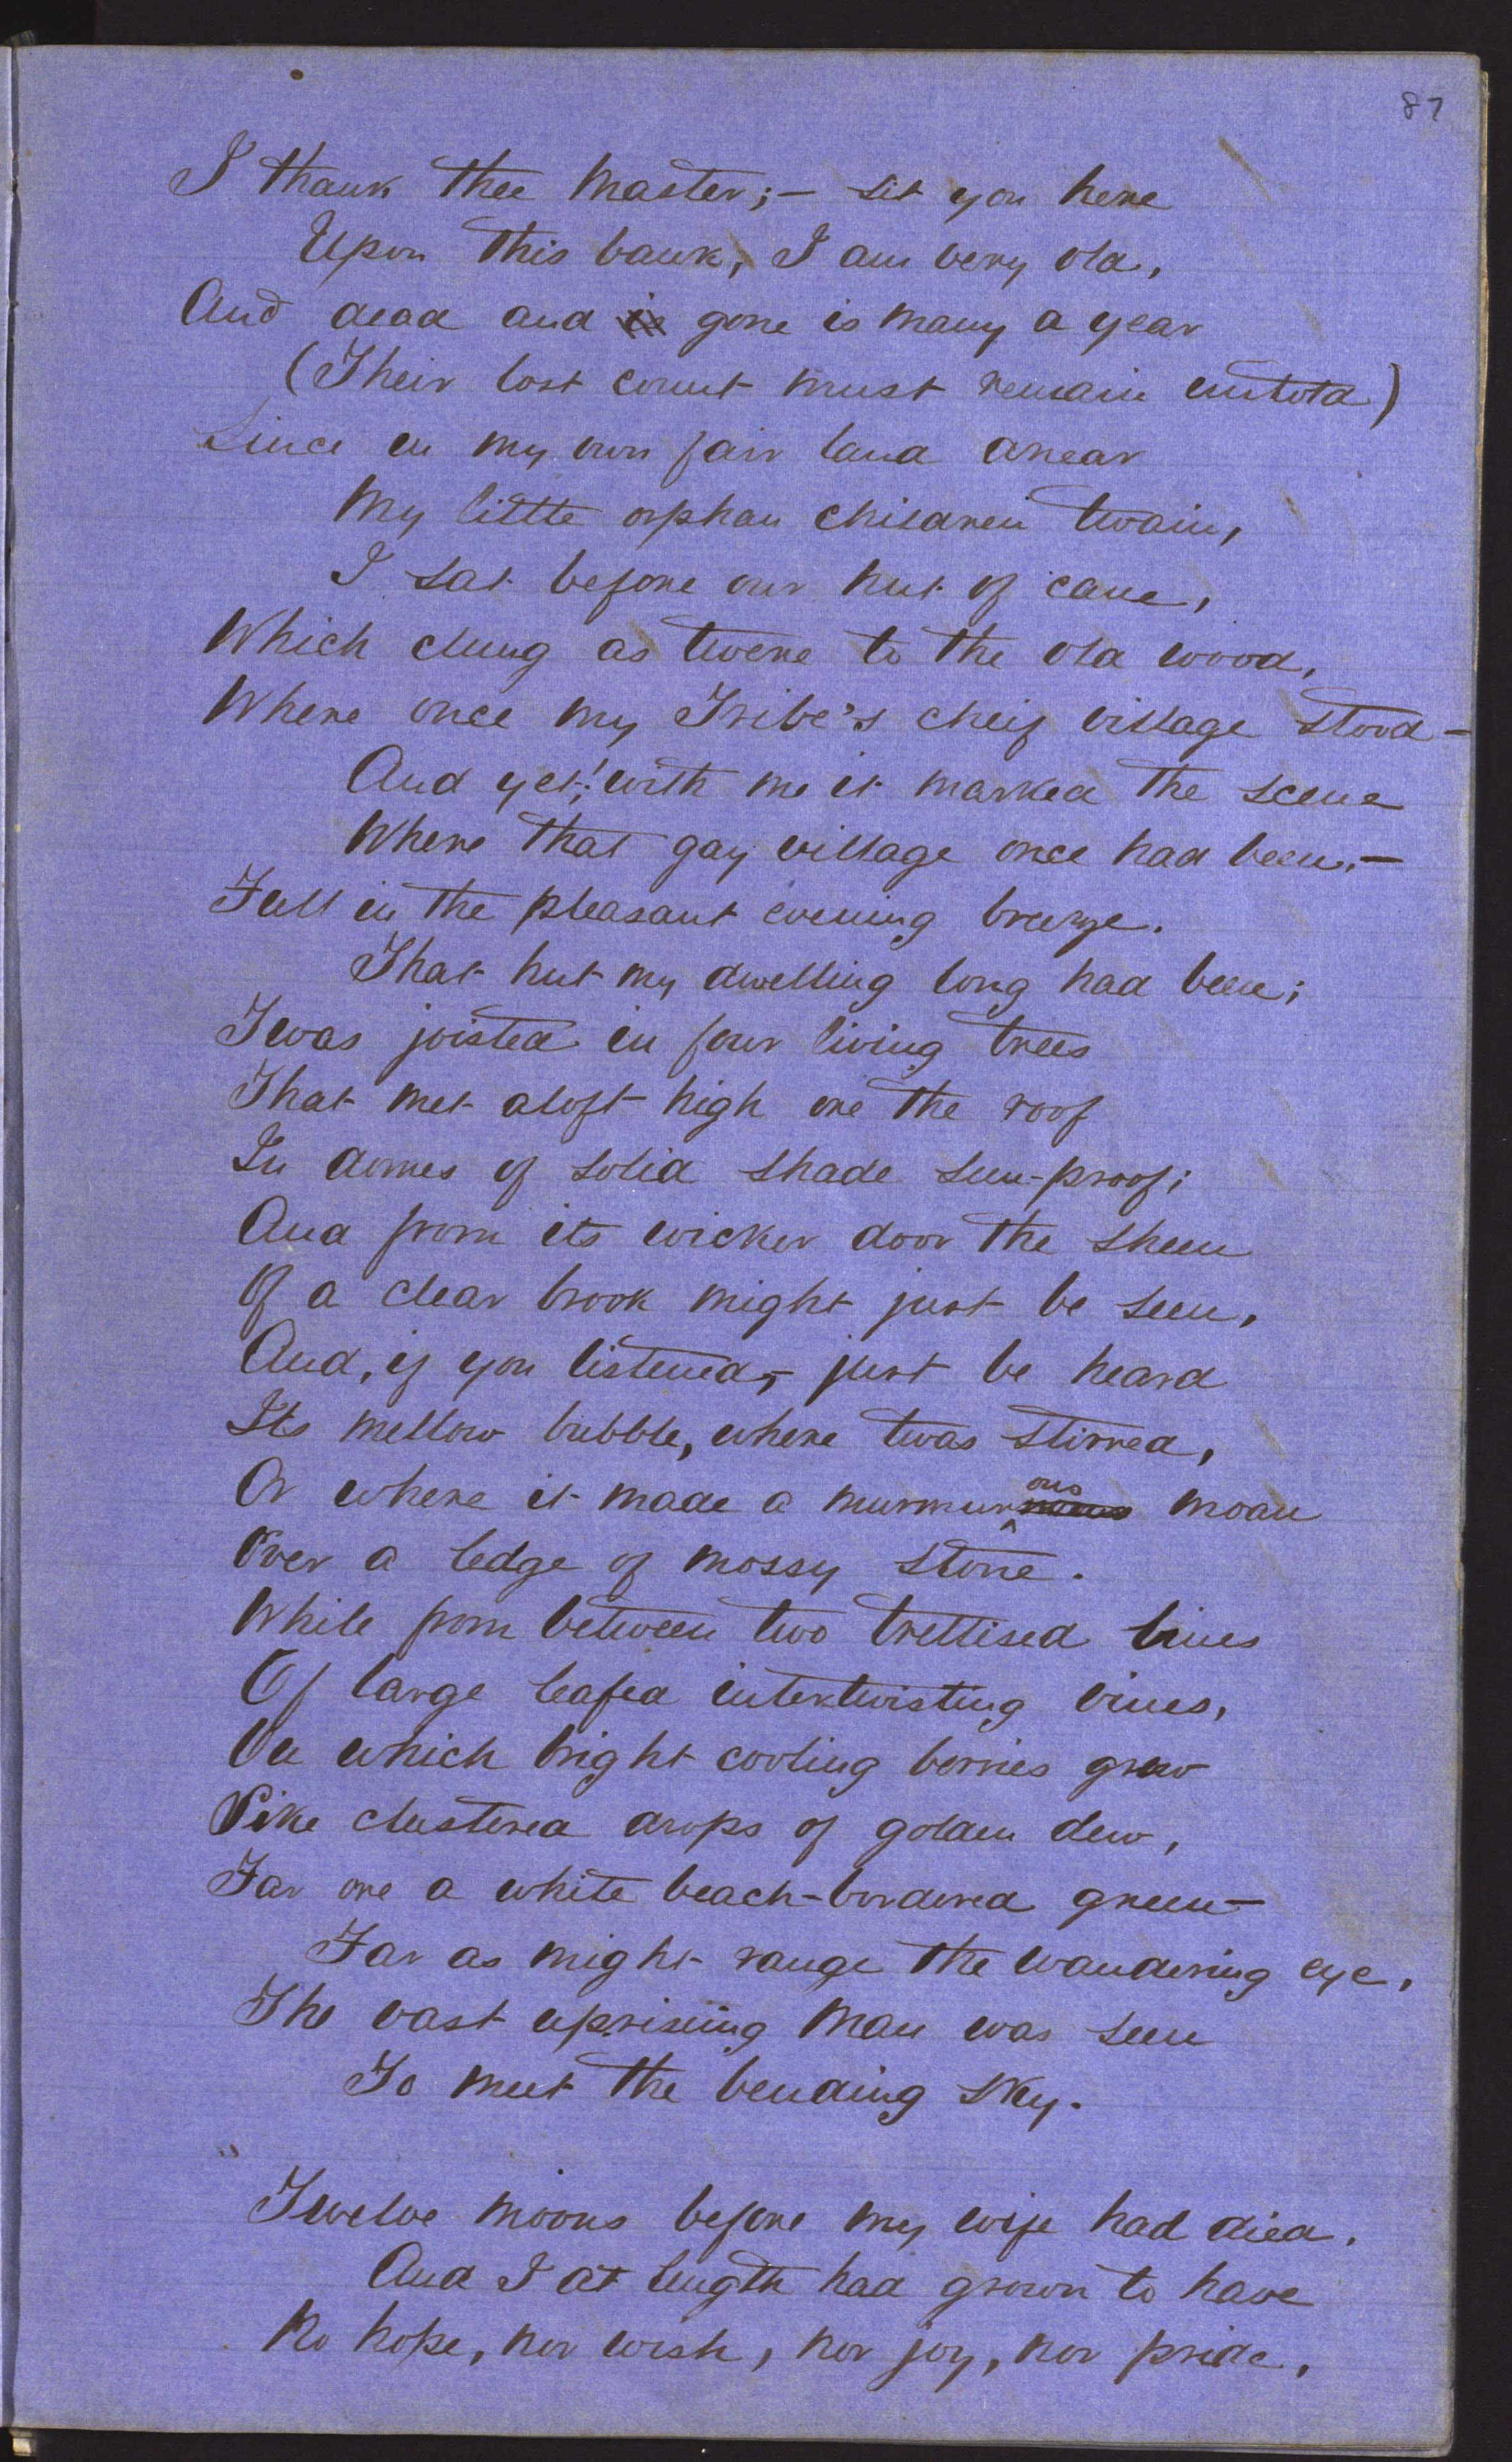 87
I thank thee Master;— sit you here
Upon this bank, I am very old,
And dead and is gone is many a year
(Their lost count must remain untold)
Since in my own fair land anear
My little orphan children twain,
I sat before our hut of cane,
Which clung as twere to the old wood,
Where once my Tribe's cheif village stood—
And yet! with me it marked the scene
Where that gay village once had been.—
Full in the pleasant evening breeze.
That hut my dwelling long had been;
Twas joisted in four living trees
That met aloft high ore the roof
In domes of solid shade sun-proof;
And from its wicker door the sheen
Of a clear brook might just be seen,
And, if you listened,— just be heard
Its mellow bubble, where twas stirred,
Or where it made a murmurous moan
Over a ledge of mossy stone.
While from between two trellised lines
Of large leafed intertwisting vines,
On which bright cooling berries grew
Like clustered drops of golden dew,
Far ore a white beach-bordered green—
Far as might range the wandering eye,
The vast uprising Main was seen
To meet the bending sky.
Twelve moons before my wife had died,
And I at length had grown to have
No hope, nor wish, nor joy, nor pride,